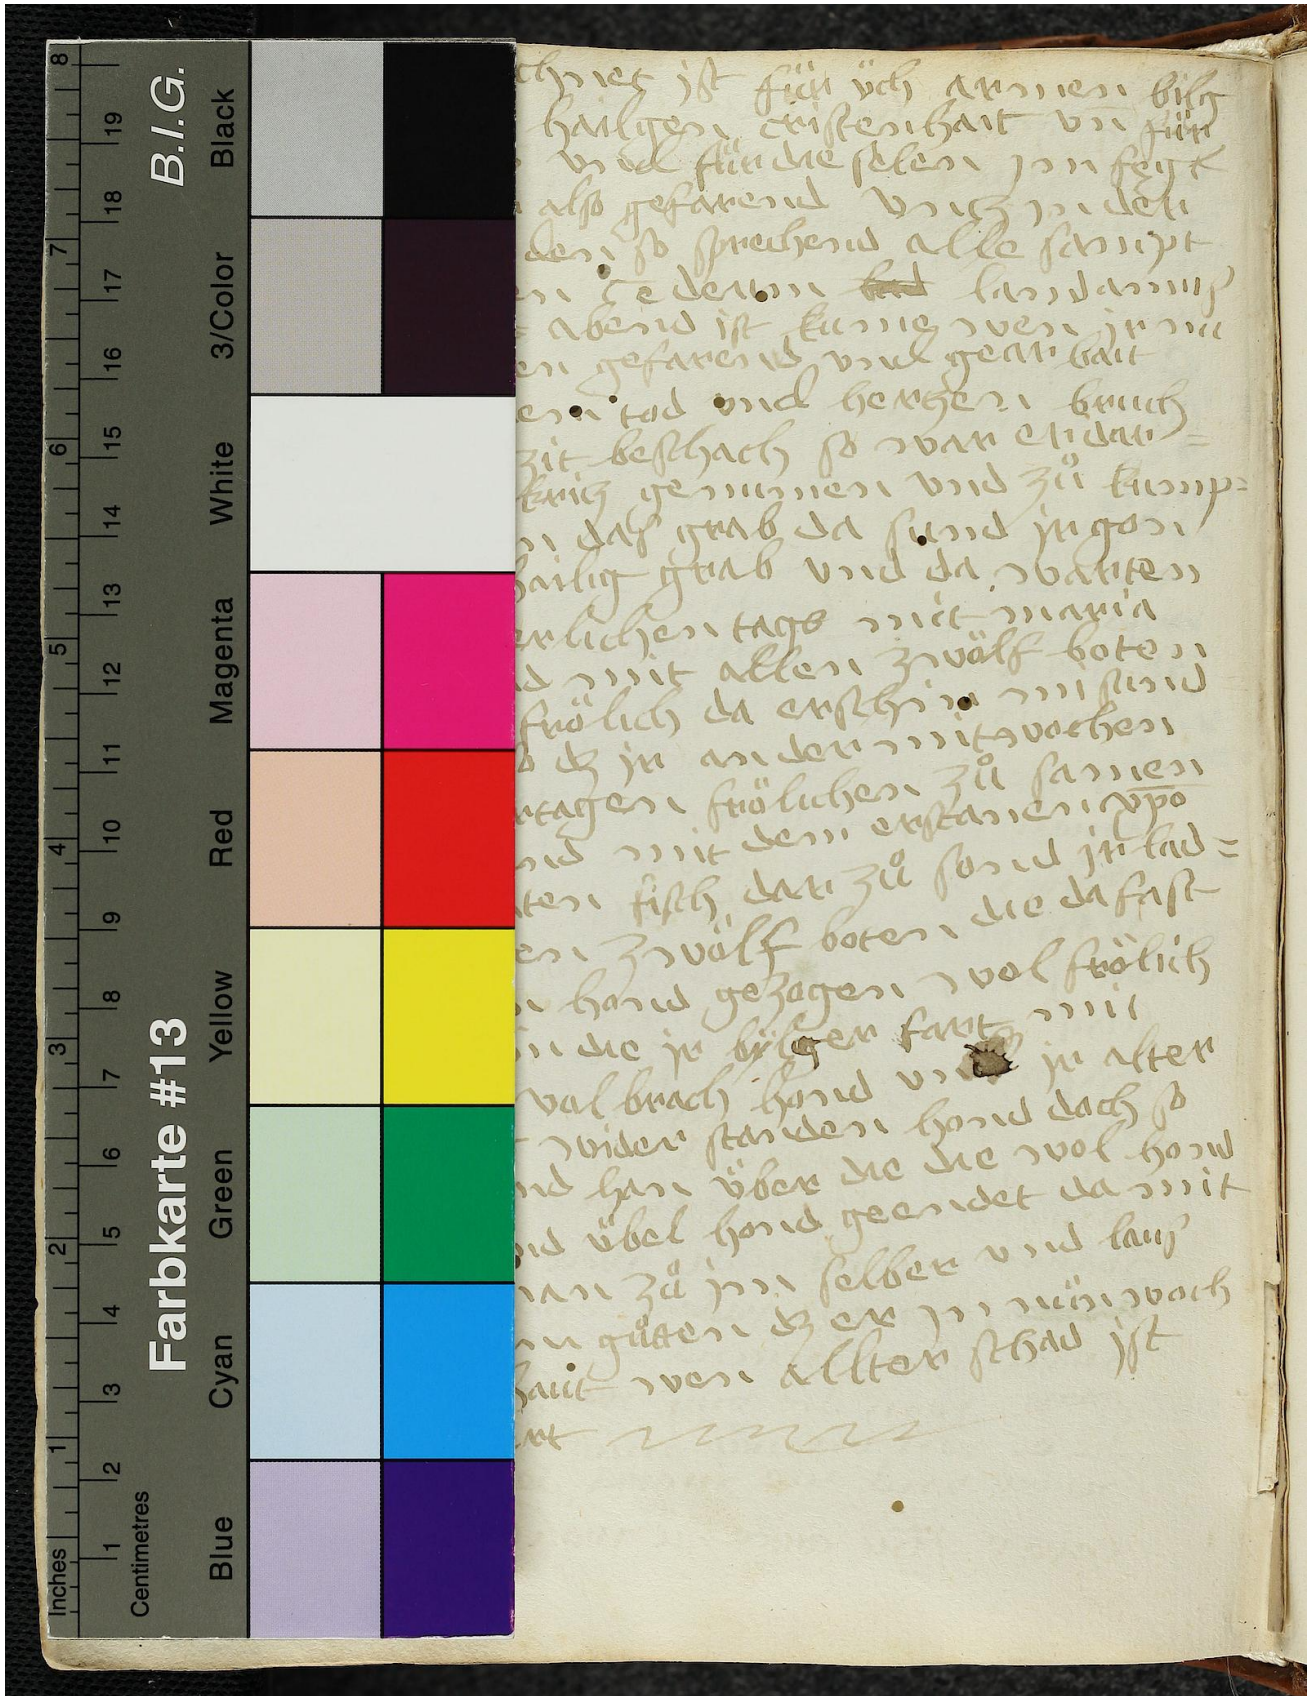 B.I.G.
Farbkarte #13
Inches 1 2 3 4 5 6 7 8
Centimetres 1 2 3 4 5 6 7 8 9 10 11 12 13 14 15 16 17 18 19
Blue Cyan Green Yellow Red Magenta White 3/Color Black
chnet ist für üch armen bilg
hailgen cristenhait vn̄ für
vnd für die selen jn fegt
also gefarend vntz jn den
den so sprechend alle sampt
abend ist kume wen ir nu
en gefarend vnd gear bait
en tod vnd hertzen bruch
zit beschach so war er dar=
krütz genumen vnd zů kump=
n das grab da sund ir gon
hailig grab vnd da warten
erlichen tags mit maria
d mit allen zwölf boten
frölich da erschin mi sund
dz ir an der mitwochen
rtagen frölichen zů samen
nd mit dem erstanen xp̄o
ten fisch dar zů sond ir lad=
en zwölf boten die da fast
n hond gezogen wol frölich
n die ir bylger fart mit
vol brach hond vnd ir alter
wider standen hond doch so
nd han über die die wol hond
nd übel hond geendet da mit
man zů jm selber vnd lauß
n gůten dz er jn nün woch
haut wen allter schad ist
rt